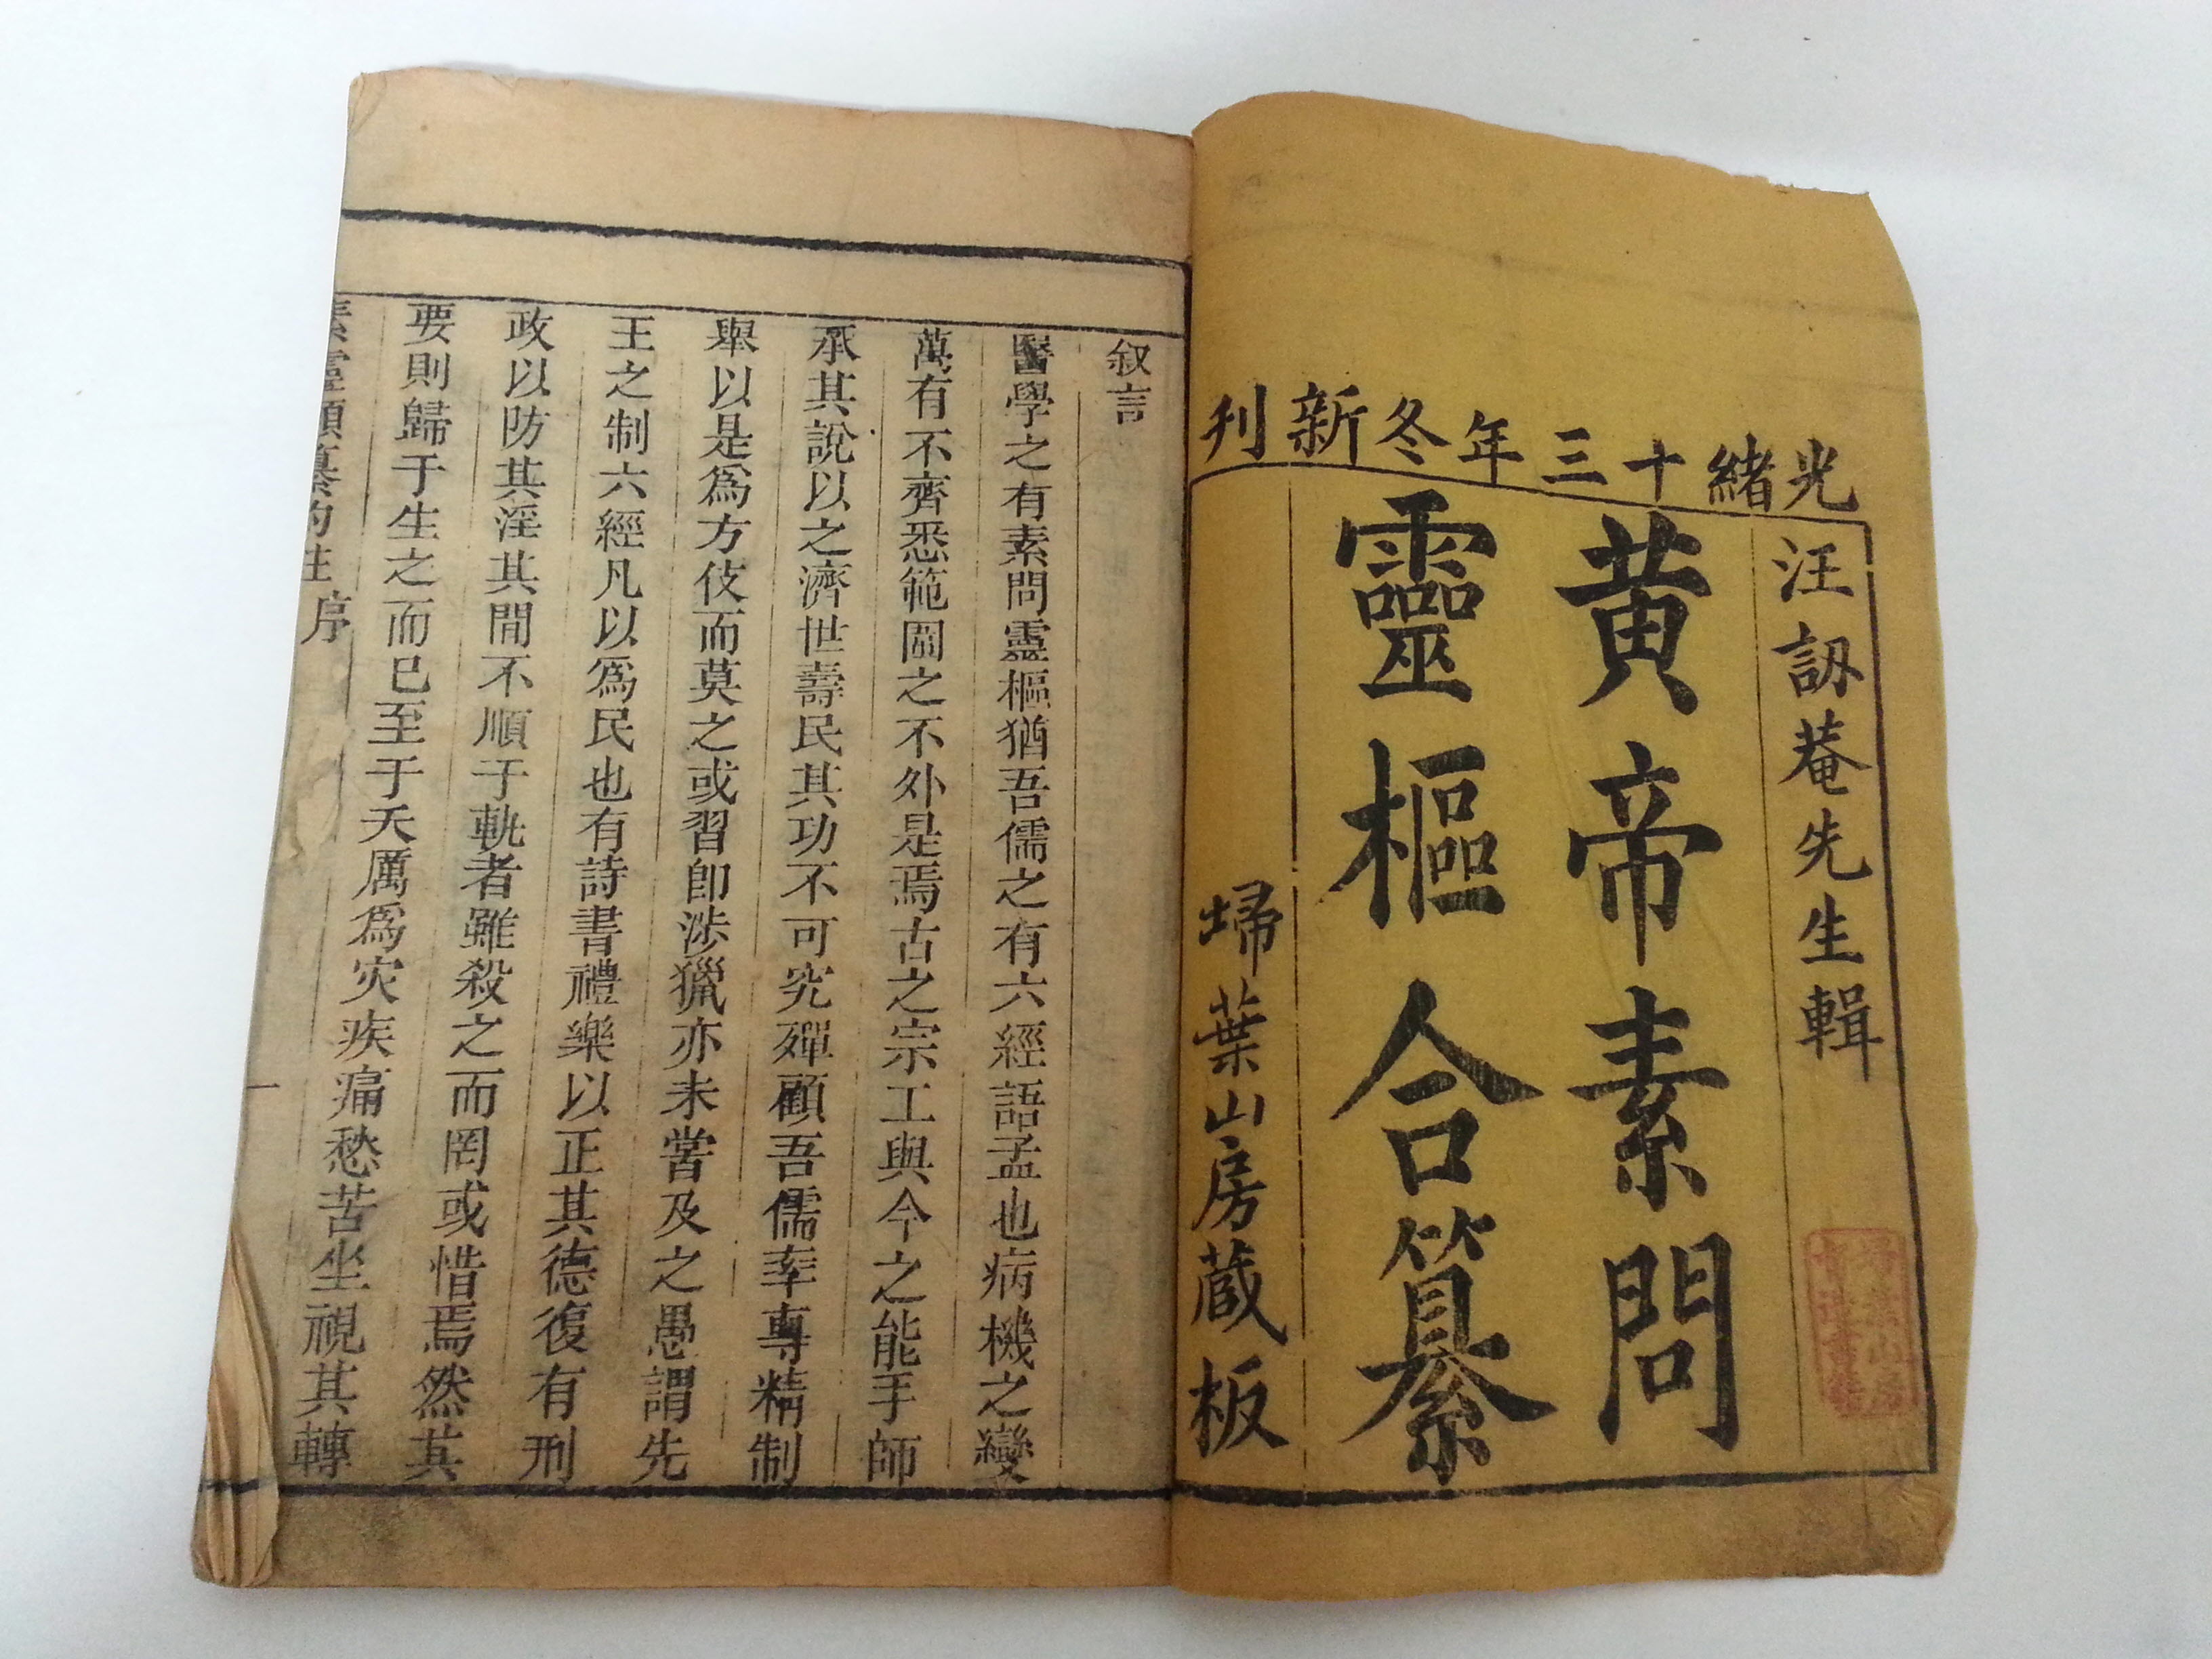 光緒十三年冬新刊
汪訒菴先生輯
黃帝素問
靈樞合纂
埽葉山房藏板
叙言
醫學之有素問靈樞猶吾儒之有六經語孟也病機之變
萬有不齊悉範圍之不外是焉古之宗工與今之能手師
承其說以之濟世壽民其功不可究殫顧吾儒率專精制
舉以是爲方伎而莫之或習即涉獵亦未嘗及之愚謂先
王之制六經凡以爲民也有詩書禮樂以正其德復有刑
政以防其淫其間不順于軌者雖殺之而罔或惜焉然其
要則歸于生之而已至于夭厲爲灾疾痛愁苦坐視其轉
素靈類纂約註 序 一